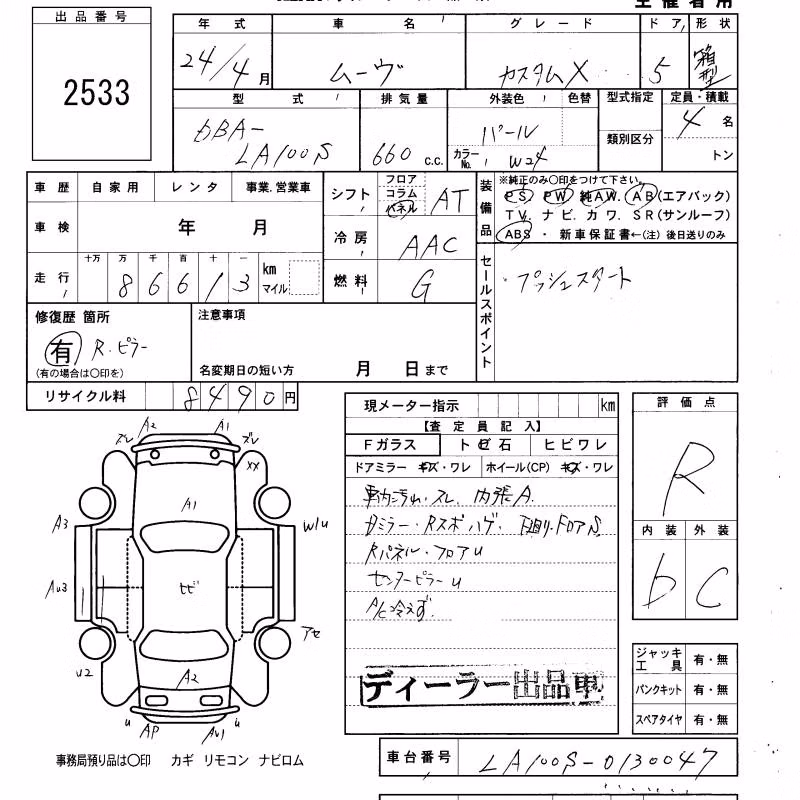 主催者用
出品番号
2533
年式 車名 グレード ドア 形状
24/4月 ムーヴ カスタムX 5 箱型
型式 排気量 外装色 色替 型式指定 定員・積載
CBA-LA100S 660 c.c. パール 類別区分 4名
カラーNo. W24 トン
車歴 自家用 レンタ 事業.営業車
車検 年 月
走行 十万 万 千 百 十 一
8 6 6 1 3 km マイル
シフト フロア コラム パネル AT
冷房 AAC
燃料 G
装備品
※純正のみ○印をつけて下さい。
PS PW 純AW. AB(エアバック)
TV. ナビ. カワ. SR(サンルーフ)
ABS ・ 新車保証書←(注) 後日送りのみ
セールスポイント
・プッシュスタート
修復歴 箇所
有 R.ピラー
(有の場合は○印を)
注意事項
名変期日の短い方 月 日まで
リサイクル料 8490円
現メーター指示 km
【査定員記入】
Fガラス トビ石 ヒビワレ
ドアミラー キズ・ワレ ホイール(CP) キズ・ワレ
車内汚れ・スレ 内張A.
ミラー・Rスポハゲ・下廻り.フロアS
Rパネル・フロアu
センターピラーu
A/C冷えず.
ディーラー出品車
評価点
R
内装 外装
b C
ジャッキ 工具 有・無
パンクキット 有・無
スペアタイヤ 有・無
A2 A1
ズレ ズレ
XX
A1
A3 W/u
Au3 ヒビ
アセ
u2 A2
u AP Au1 u
事務局預り品は○印 カギ リモコン ナビロム
車台番号 LA100S-0130047